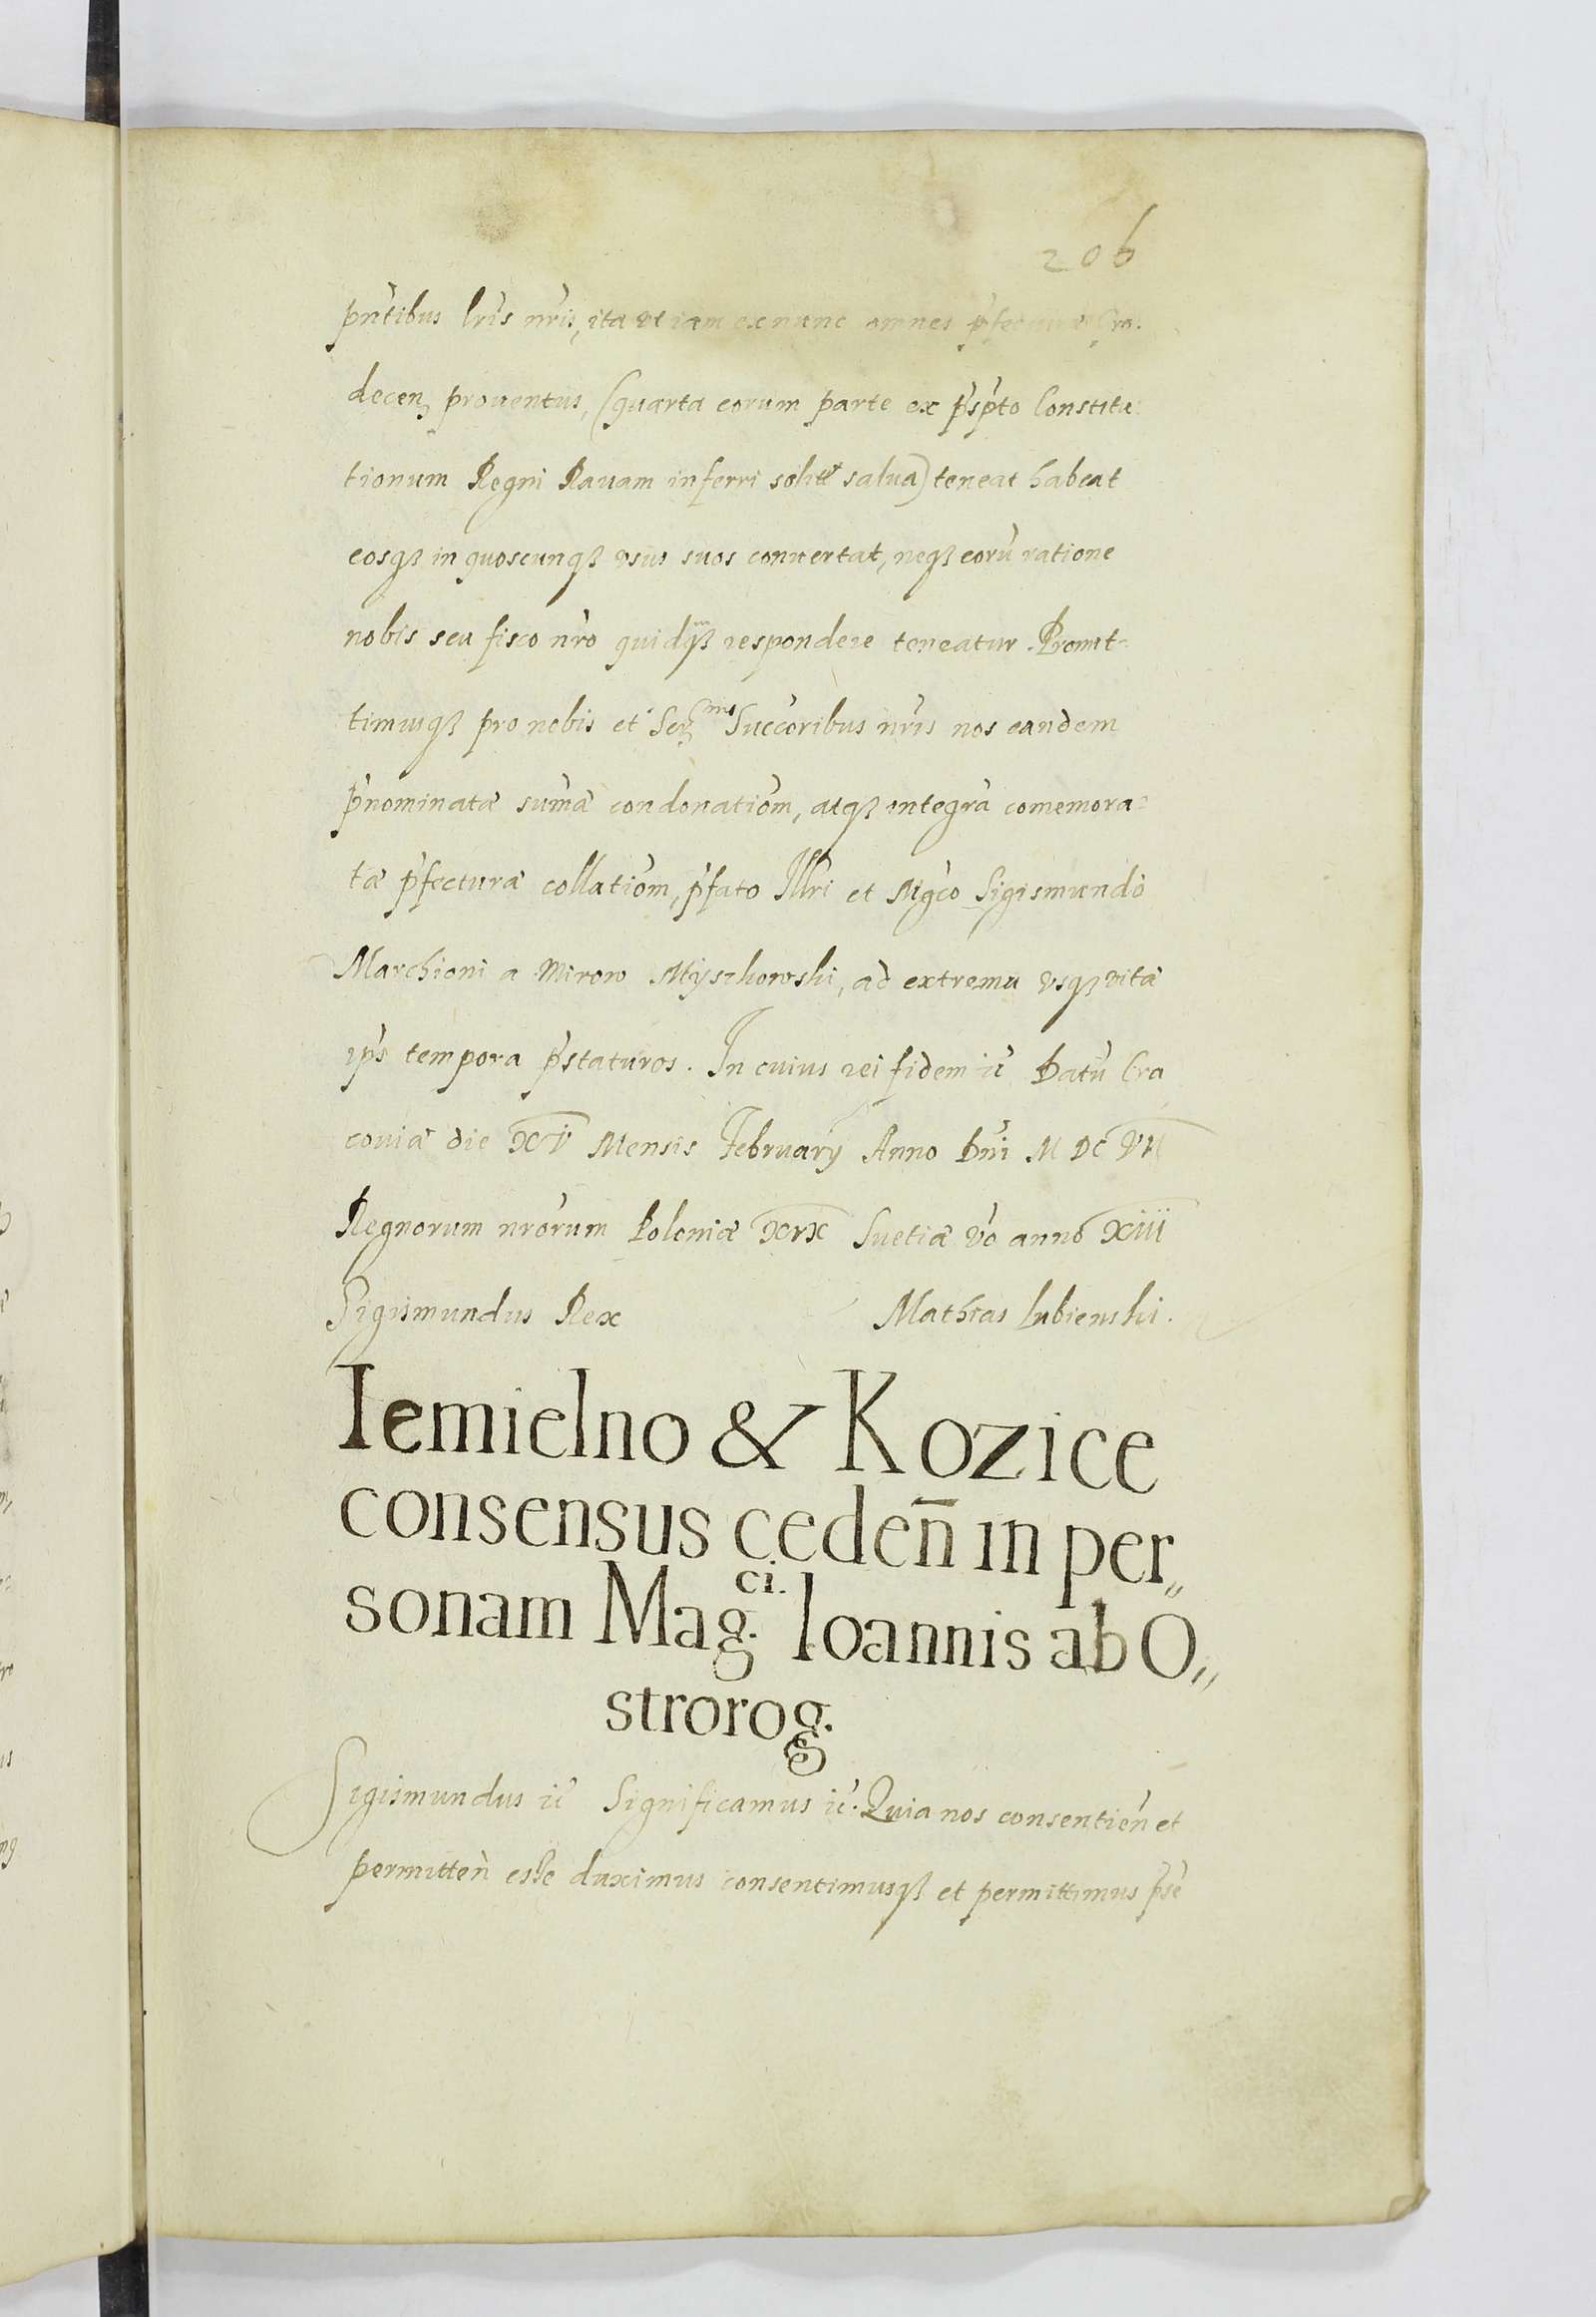 206
pn̄tibus lrīs nrīs, ita vt iam ex nunc omnes p̄fecturæ Gro„
decen̄ prouentus, (quarta eorum parte ex p̄sp̄to Constitu„
tionum Regni Rauam inferri solita salua) teneat habeat
eosq3 in quoscunq3 vsus suos conuertat, neq3 eorū ratione
nobis seu fisco nr̄o quidq3 respondere teneatur. Promit„
timusq3 pro nobis et Ser^mis Succ̄oribus nrīs nos eandem
p̄nominatæ sum̄æ condonatiōm, atq3 integrā comemora„
tæ p̄fecturæ collatiōm, p̄fato Illr̄i et Mgc̄o Sigismundo
Marchioni a Mirow Myszkowski, ad extrema vsq3 vitæ
ip̄s tempora p̄staturos. In cuius rei fidem ic̄ Datū Cra
couiæ die XV Mensis February Anno Dnī M DC VII
Regnorum nrōrum Poloniæ XIX Suetiæ v̄o anno XIII
Sigismundus Rex Mathias Lubienski.
Iemielno & Kozice
consensus cedeñ in per„
sonam Mag^ci. Ioannis ab O„
strorog.
Sigismundus ic̄ Significamus ic̄. Quia nos consentien̄ et
permitten̄ esse duximus consentimusq3 et permittimus p̄se